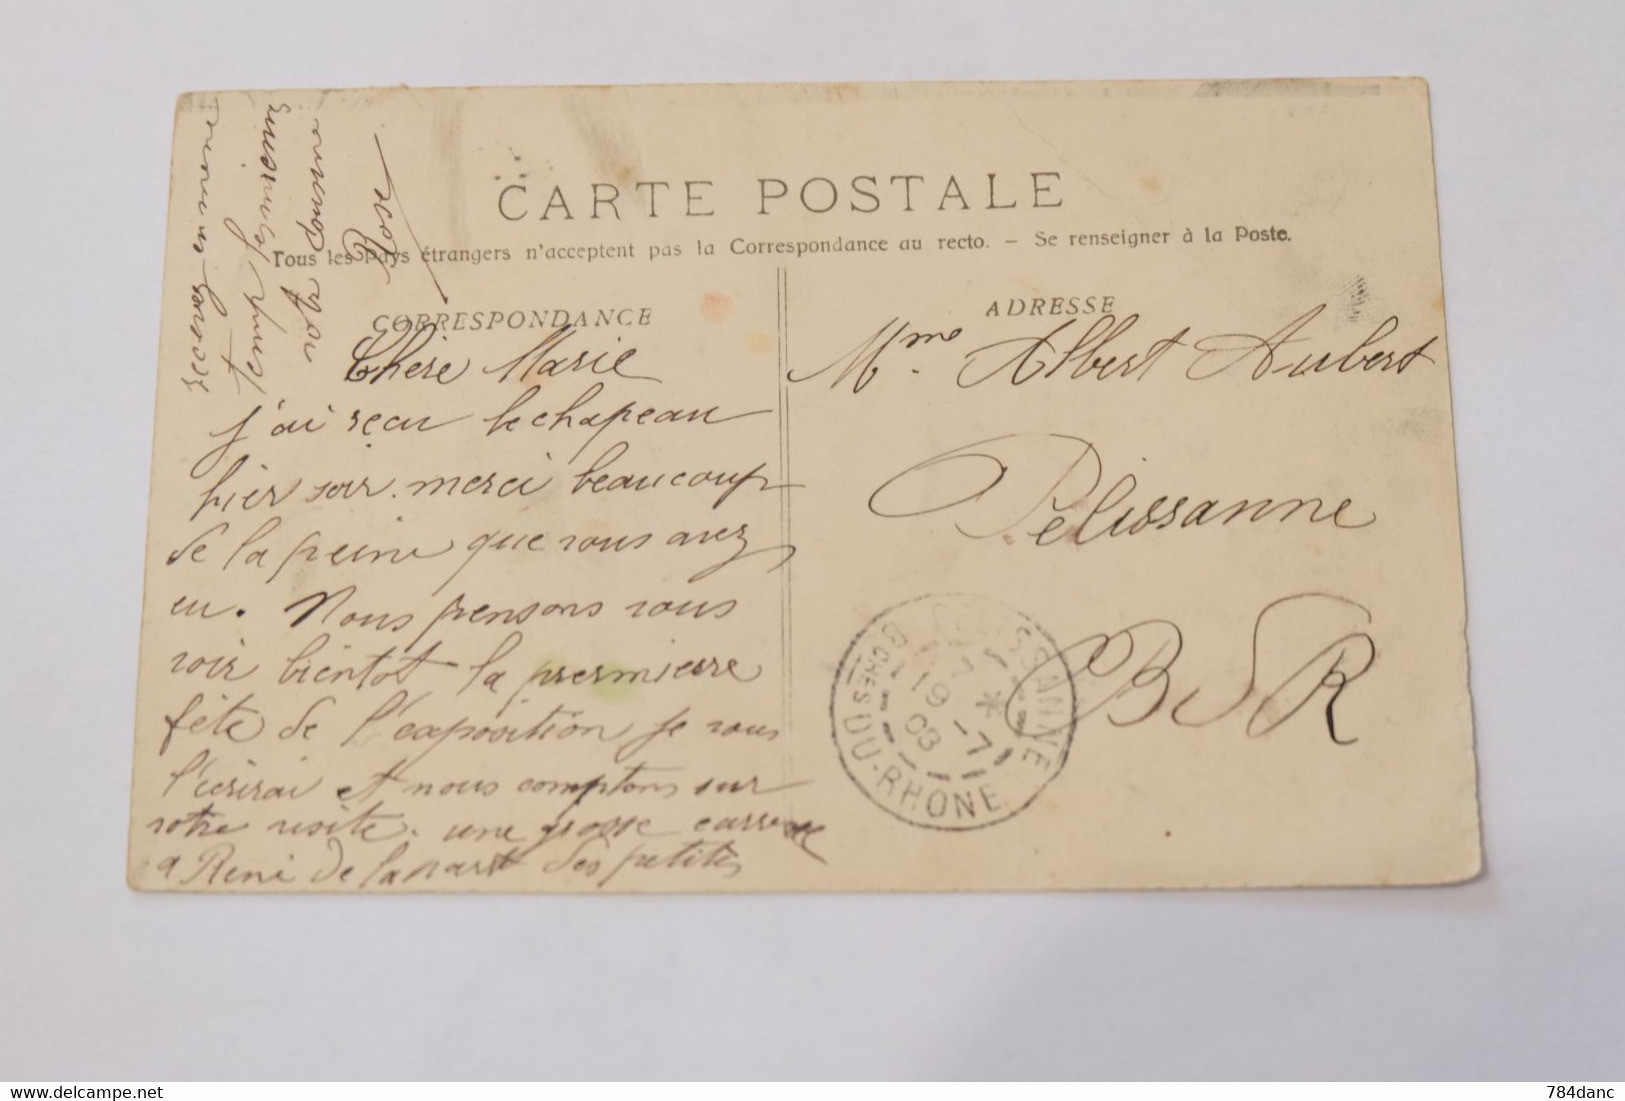 CARTE POSTALE
Tous les Pays étrangers n'acceptent pas la Correspondance au recto. - Se renseigner à la Poste.
CORRESPONDANCE
Chère Marie
j'ai reçu le chapeau
hier soir. merci beaucoup
de la peine que vous avez
eu. Nous pensons vous
voir bientot la premierre
fête de l'exposition je vous
l'écrirai et nous comptons sur
votre visite. une grosse
a René de la part des petites
ADRESSE
Mme Albert Aubert
Pélissanne
B d R
BCHES DU-RHONE
19 -7
08
delcampe.net
784danc